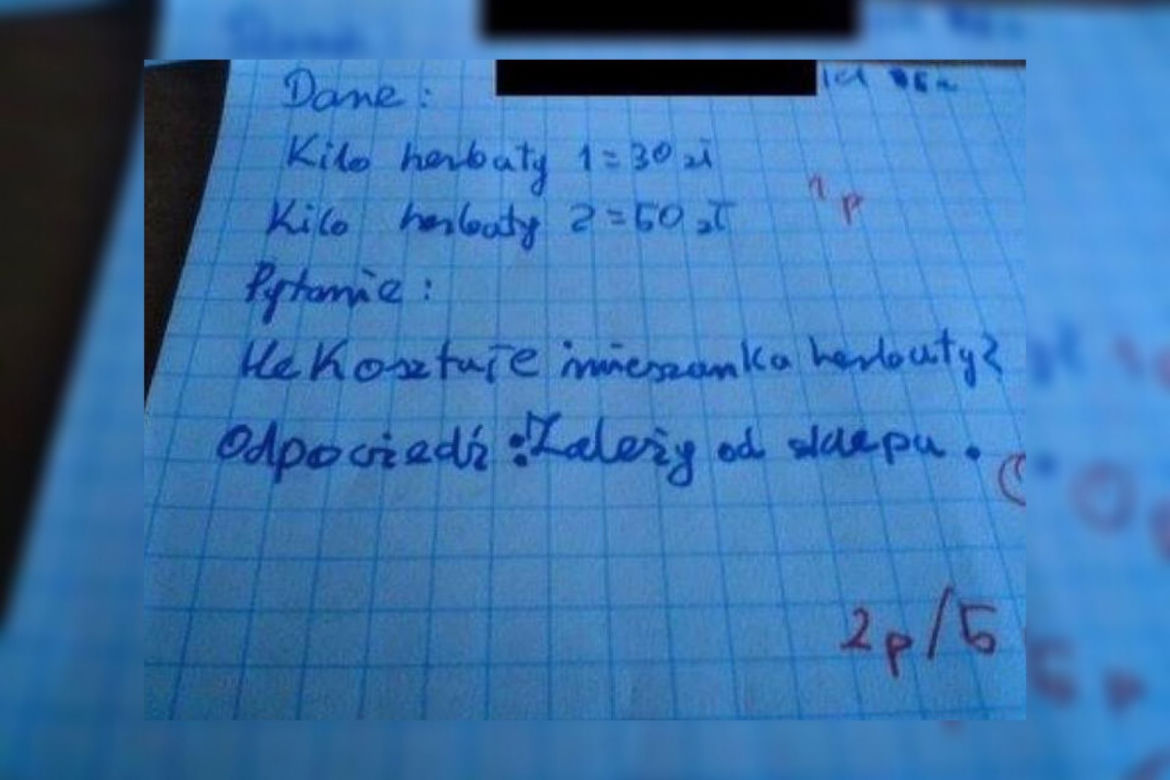 Dane:
Kilo herbaty 1=30 zł
1p
Kilo herbaty 2=50 zł
Pytanie:
Ile Kosztuje mieszanka herbaty?
Odpowiedź: Zależy od sklepu.
2p/5